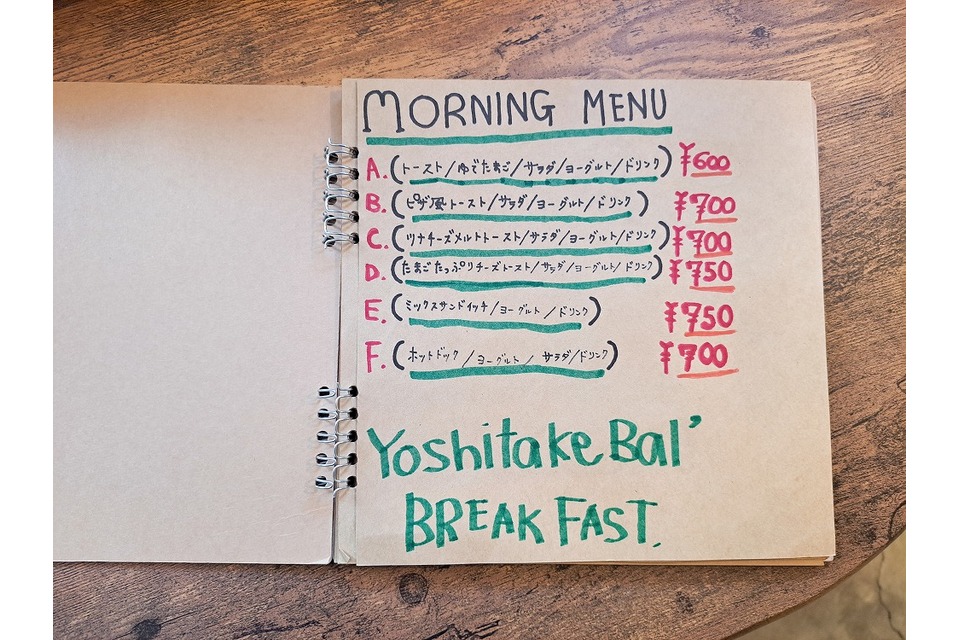 MORNING MENU
A. (トースト/ゆでたまご/サラダ/ヨーグルト/ドリンク) ¥600
B. (ピザ風トースト/サラダ/ヨーグルト/ドリンク) ¥700
C. (ツナチーズメルトトースト/サラダ/ヨーグルト/ドリンク) ¥700
D. (たまごたっぷりチーズトースト/サラダ/ヨーグルト/ドリンク) ¥750
E. (ミックスサンドイッチ/ヨーグルト/ドリンク) ¥750
F. (ホットドック/ヨーグルト/サラダ/ドリンク) ¥700
Yoshitake Bal'
BREAK FAST.